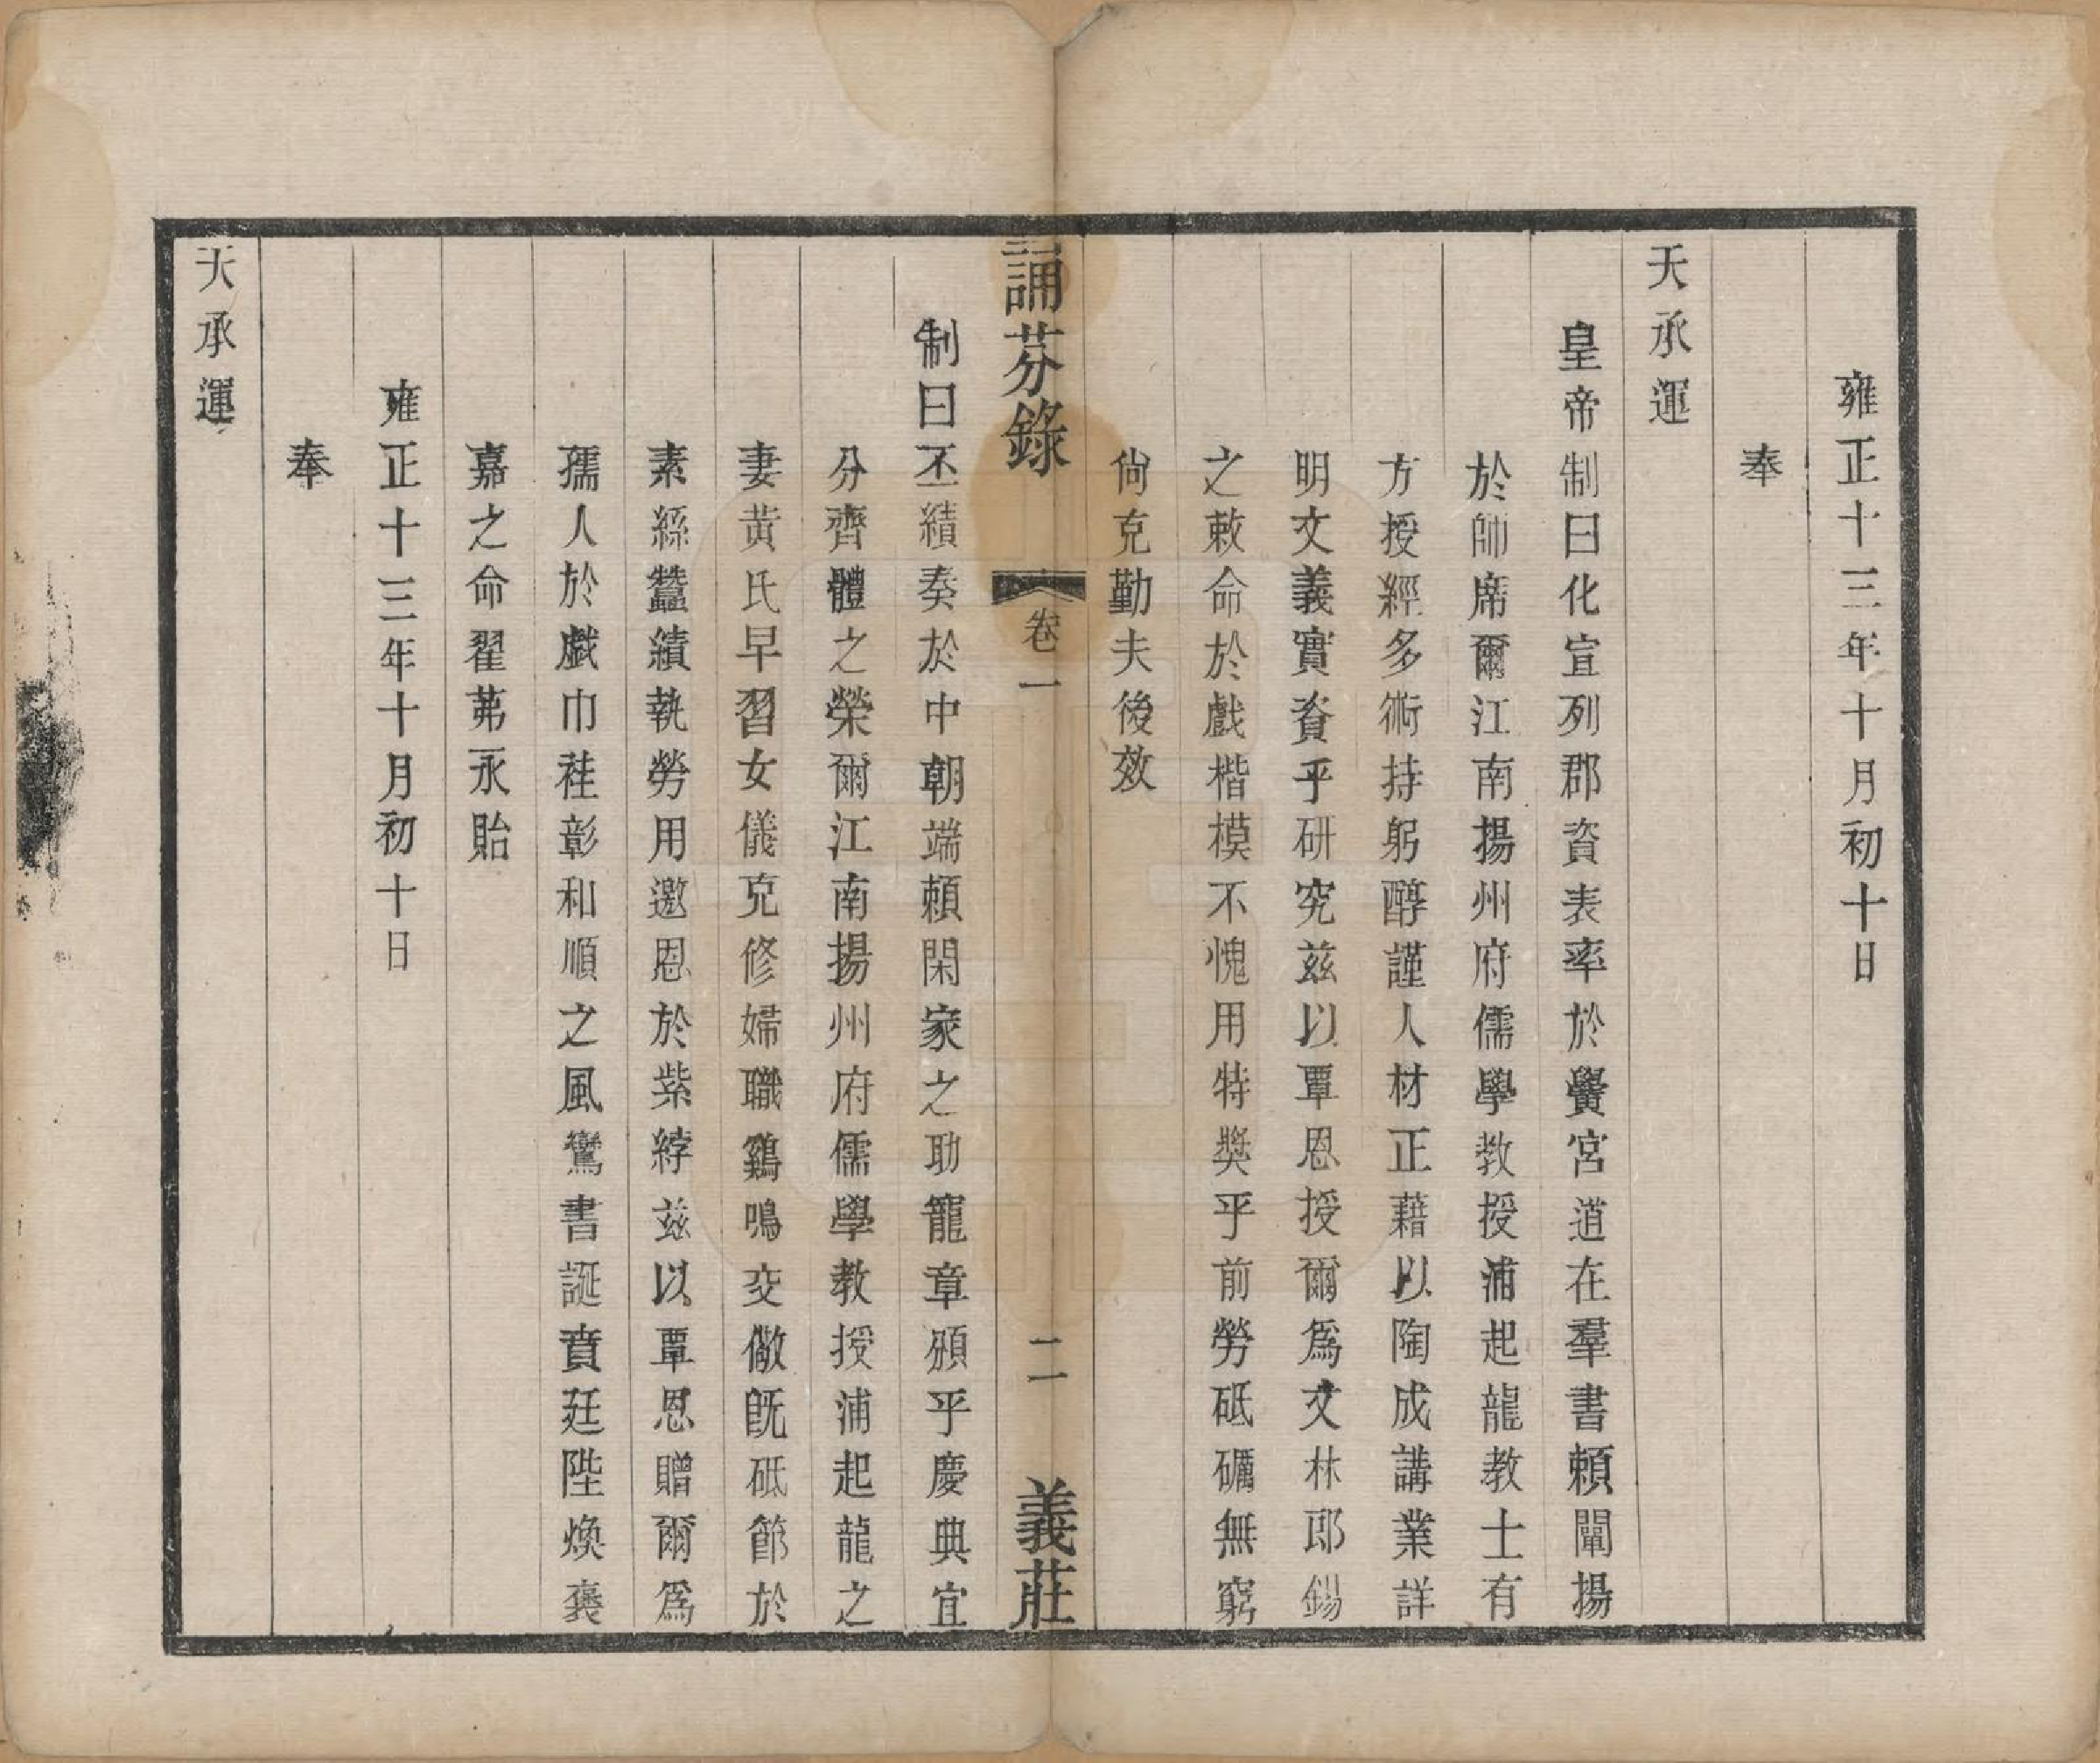 雍正十三年十月初十日
奉
天承運
皇帝制曰化宣列郡資表率於黌宮道在羣書賴闡揚
於師席爾江南揚州府儒學教授浦起龍教士有
方授經多術持躬醇謹人材正藉以陶成講業詳
明文義實資乎研究茲以覃恩授爾爲文林郎錫
之敕命於戲楷模不愧用特奬乎前勞砥礪無窮
尙克勤夫後效
誦芬錄
卷一
二
義莊
制曰丕績奏於中朝端賴閑家之助寵章頒乎慶典宜
分齊體之榮爾江南揚州府儒學教授浦起龍之
妻黃氏早習女儀克修婦職鷄鳴交儆旣砥節於
素絲蠶績執勞用邀恩於紫綍茲以覃恩贈爾爲
孺人於戲巾袿彰和順之風鸞書誕賁廷陛煥褒
嘉之命翟茀永貽
雍正十三年十月初十日
奉
天承運